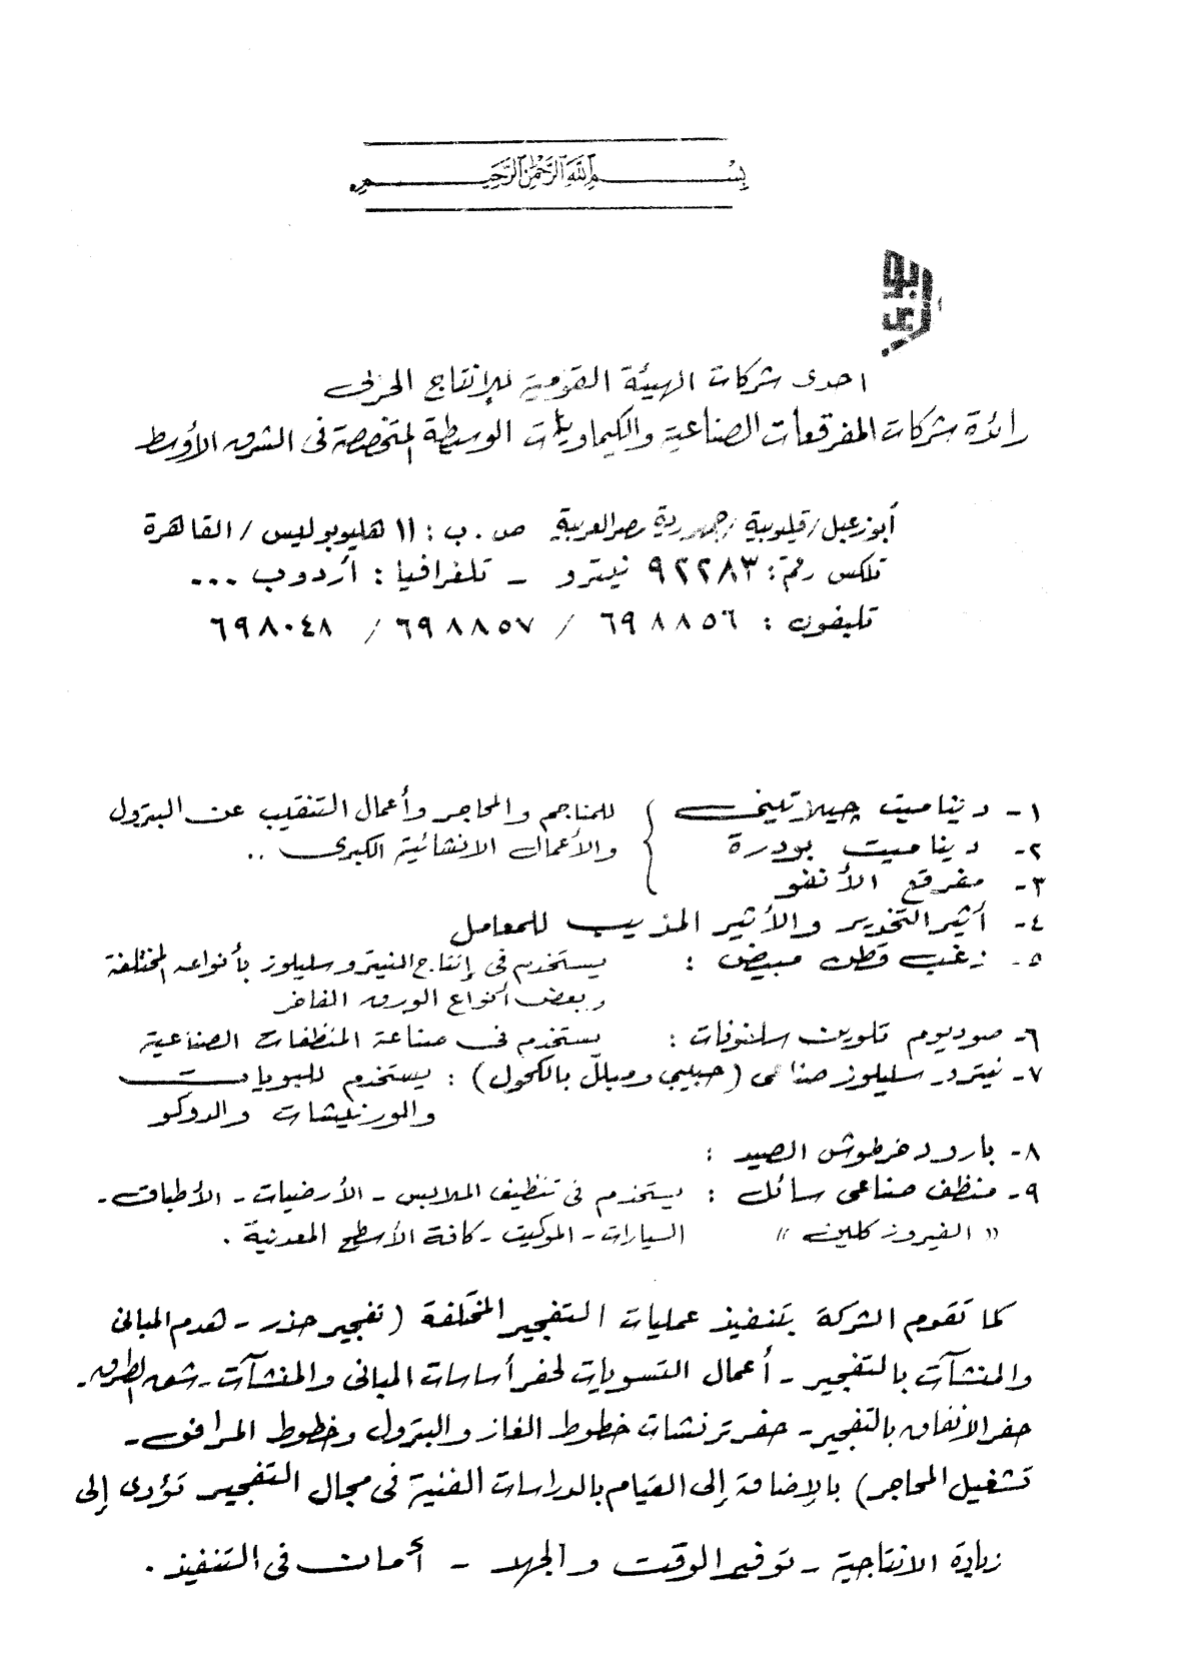 بسم الله الرحمن الرحيم
أبو زعبل
احدى شركات الهيئة القومية للإنتاج الحربى
رائدة شركات المفرقعات الصناعية والكيماويات الوسيطة المتخصصة فى الشرق الأوسط
أبوزعبل / قليوبية / جمهورية مصر العربية ص . ب : ١١ هليوبوليس / القاهرة
تلكس رقم : ٩٢٢٨٣ نيترو - تلغرافيا : أردوب ...
تليفون : ٦٩٨٨٥٦ / ٦٩٨٨٥٧ / ٦٩٨٠٤٨
١- ديناميت چيلاتينى } للمناجم والمحاجر وأعمال التنقيب عن البترول
٢- ديناميت بودرة والأعمال الانشائية الكبرى ..
٣- مفرقع الأنفو
٤- أثير التخدير والأثير المذيب للمعامل
٥- زغب قطن مبيض : يستخدم فى إنتاج النيتروسليلوز بأنواعه المختلفة
وبعض أنواع الورق الفاخر
٦- صوديوم تلوين سلفونات : يستخدم فى صناعة المنظفات الصناعية
٧- نيتروسليلوز صناعى (حبيبي ومبلل بالكحول) : يستخدم للبويات
والورنيشات والدوكو
٨- بارود خرطوش الصيد :
٩- منظف صناعى سائل : يستخدم فى تنظيف الملابس - الأرضيات - الأطباق -
" الفيروز كلين " السيارات - الموكيت - كافة الأسطح المعدنية .
كما تقوم الشركة بتنفيذ عمليات التفجير المختلفة ( تفجير حذر - هدم المبانى
والمنشآت بالتفجير - أعمال التسويات لحفر أساسات المبانى والمنشآت - شق الطرق -
حفر الانفاق بالتفجير - حفر ترنشات خطوط الغاز والبترول وخطوط المرافق -
تشغيل المحاجر ) بالإضافة إلى القيام بالدراسات الفنية فى مجال التفجير تؤدى إلى
زيادة الانتاجية - توفير الوقت والجهد - أمان فى التنفيذ .